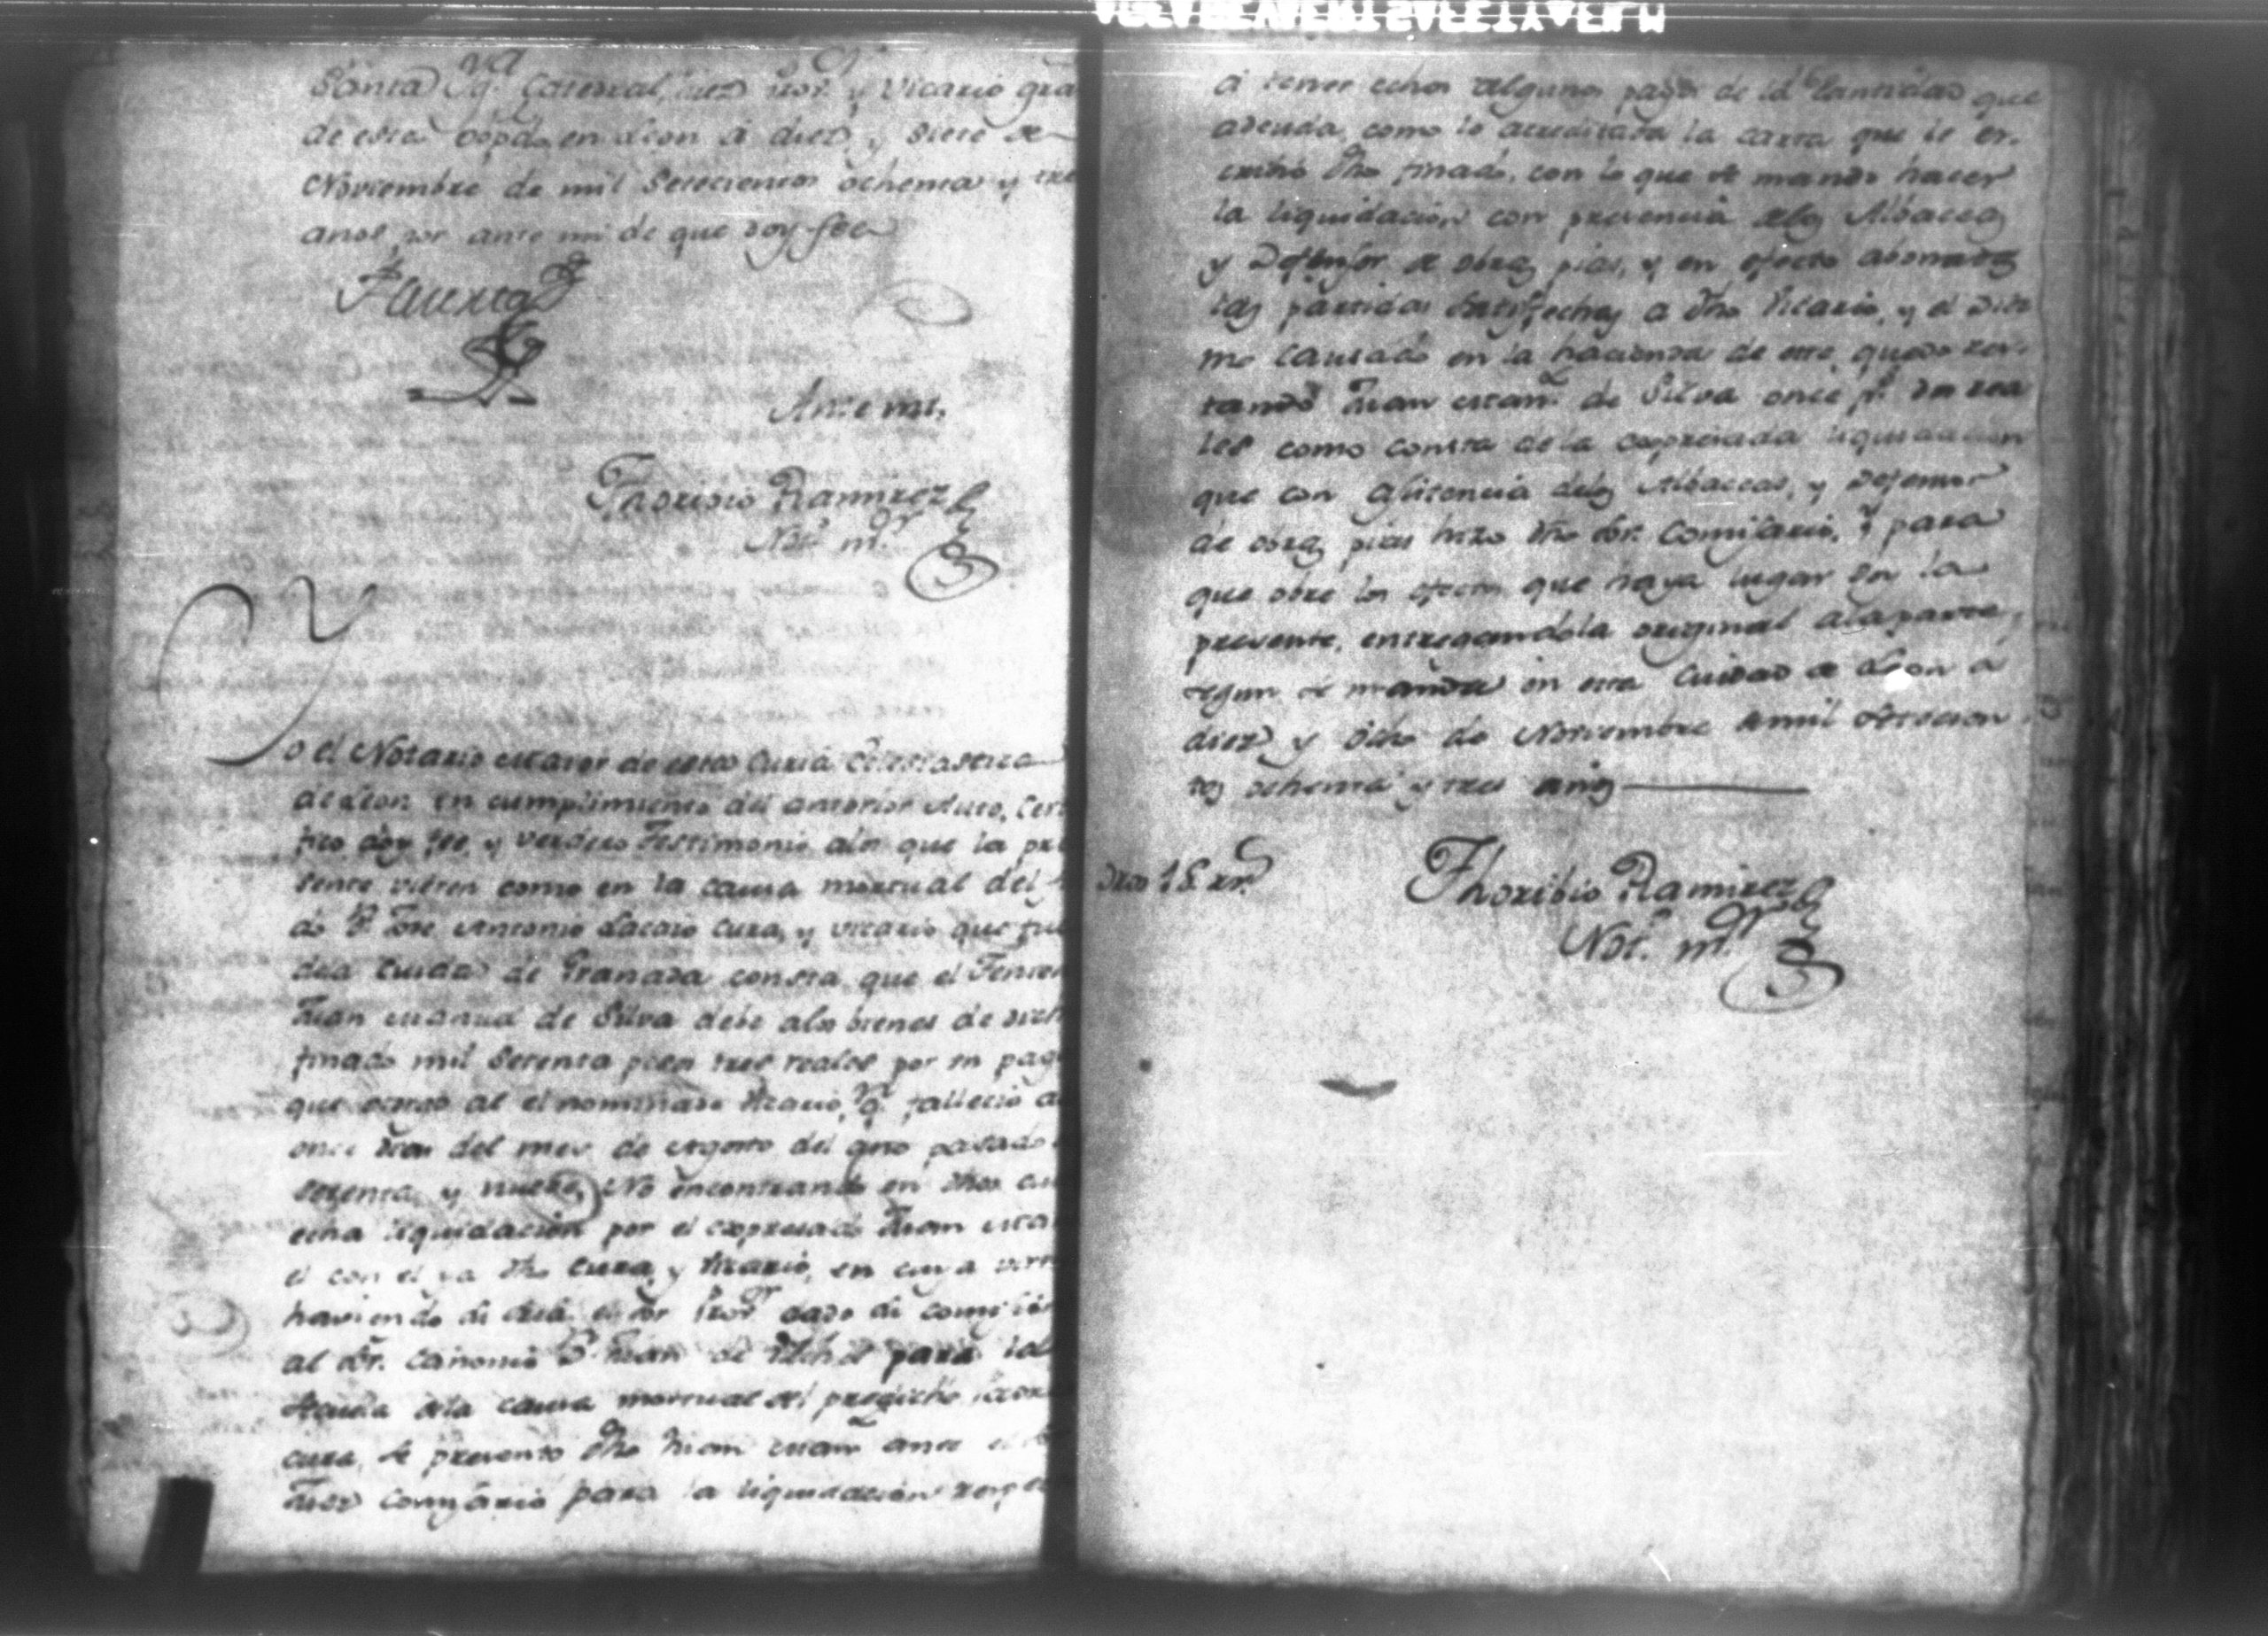 Santa Yg.ª Catedral, Juez Prov.r y Vicario gra
de este Obpdo en Leon á diez y siete de
Noviembre de mil Setecientos ochenta y tres
anos por ante mi de que doy fee
Ante mi,
Thoribio Ramirez
Not.º m.or
Yo el Notario maior de esta Curia Eclesiastica
de Leon en cumplimiento del anterior Auto, Cer
fico doy fee, y verdero Testimonio alos que la pre
sente vieren como en la causa mortual del
do D.n Jose Antonio Lacaio Cura, y vicario que fue
dela Ciudad de Granada consta que el Tenien
Juan Manuel de Silva debe alos bienes de
finado mil setenta pesos tres reales por un pag
que otorgo al el nominado Vicario, q.e fallecio a
once dias del mes de Agosto del año pasado
setenta, y nueve, No encontrando en dhos au
echa liquidacion por el expresado Juan Ma
el con el ya dho Cura, y Vicario, en cuya virt
haviendo el Sor Prov.or dado su comision
al Sr. Canonigo D. Juan de para la
de la causa mortual del predicho
cura, se presento dho Juan Man.l ante el
Juez Comisario para la liquidacion respe
á tener echos algunos pagos de la Cantidad que
adeuda, como lo acreditaba la carta que le es-
crivió dho finado, con lo que se mandó hacer
la liquidacion con presencia delos Albaceas
y Defensor de obras pias, y en efecto abonadas
las partidas satisfechas a dho Vicario, y el Diez
mo causado en la hacienda de este, quedó res-
tando Juan Man.l de Silva once p.s dos rea
les como consta de la expresada liquidacion
que con asistencia delos Albaceas, y Defensor
de obras pias hizo dho Sr. Comisario, y para
que obre los efectos que haya lugar doy la
presente, entregandola original ala parte,
segun se manda en esta Ciudad de Leon á
diez y ocho de Noviembre de mil setecien
tos ochenta y tres años
Dros 18 rr.s
Thoribio Ramirez
Not.º m.or